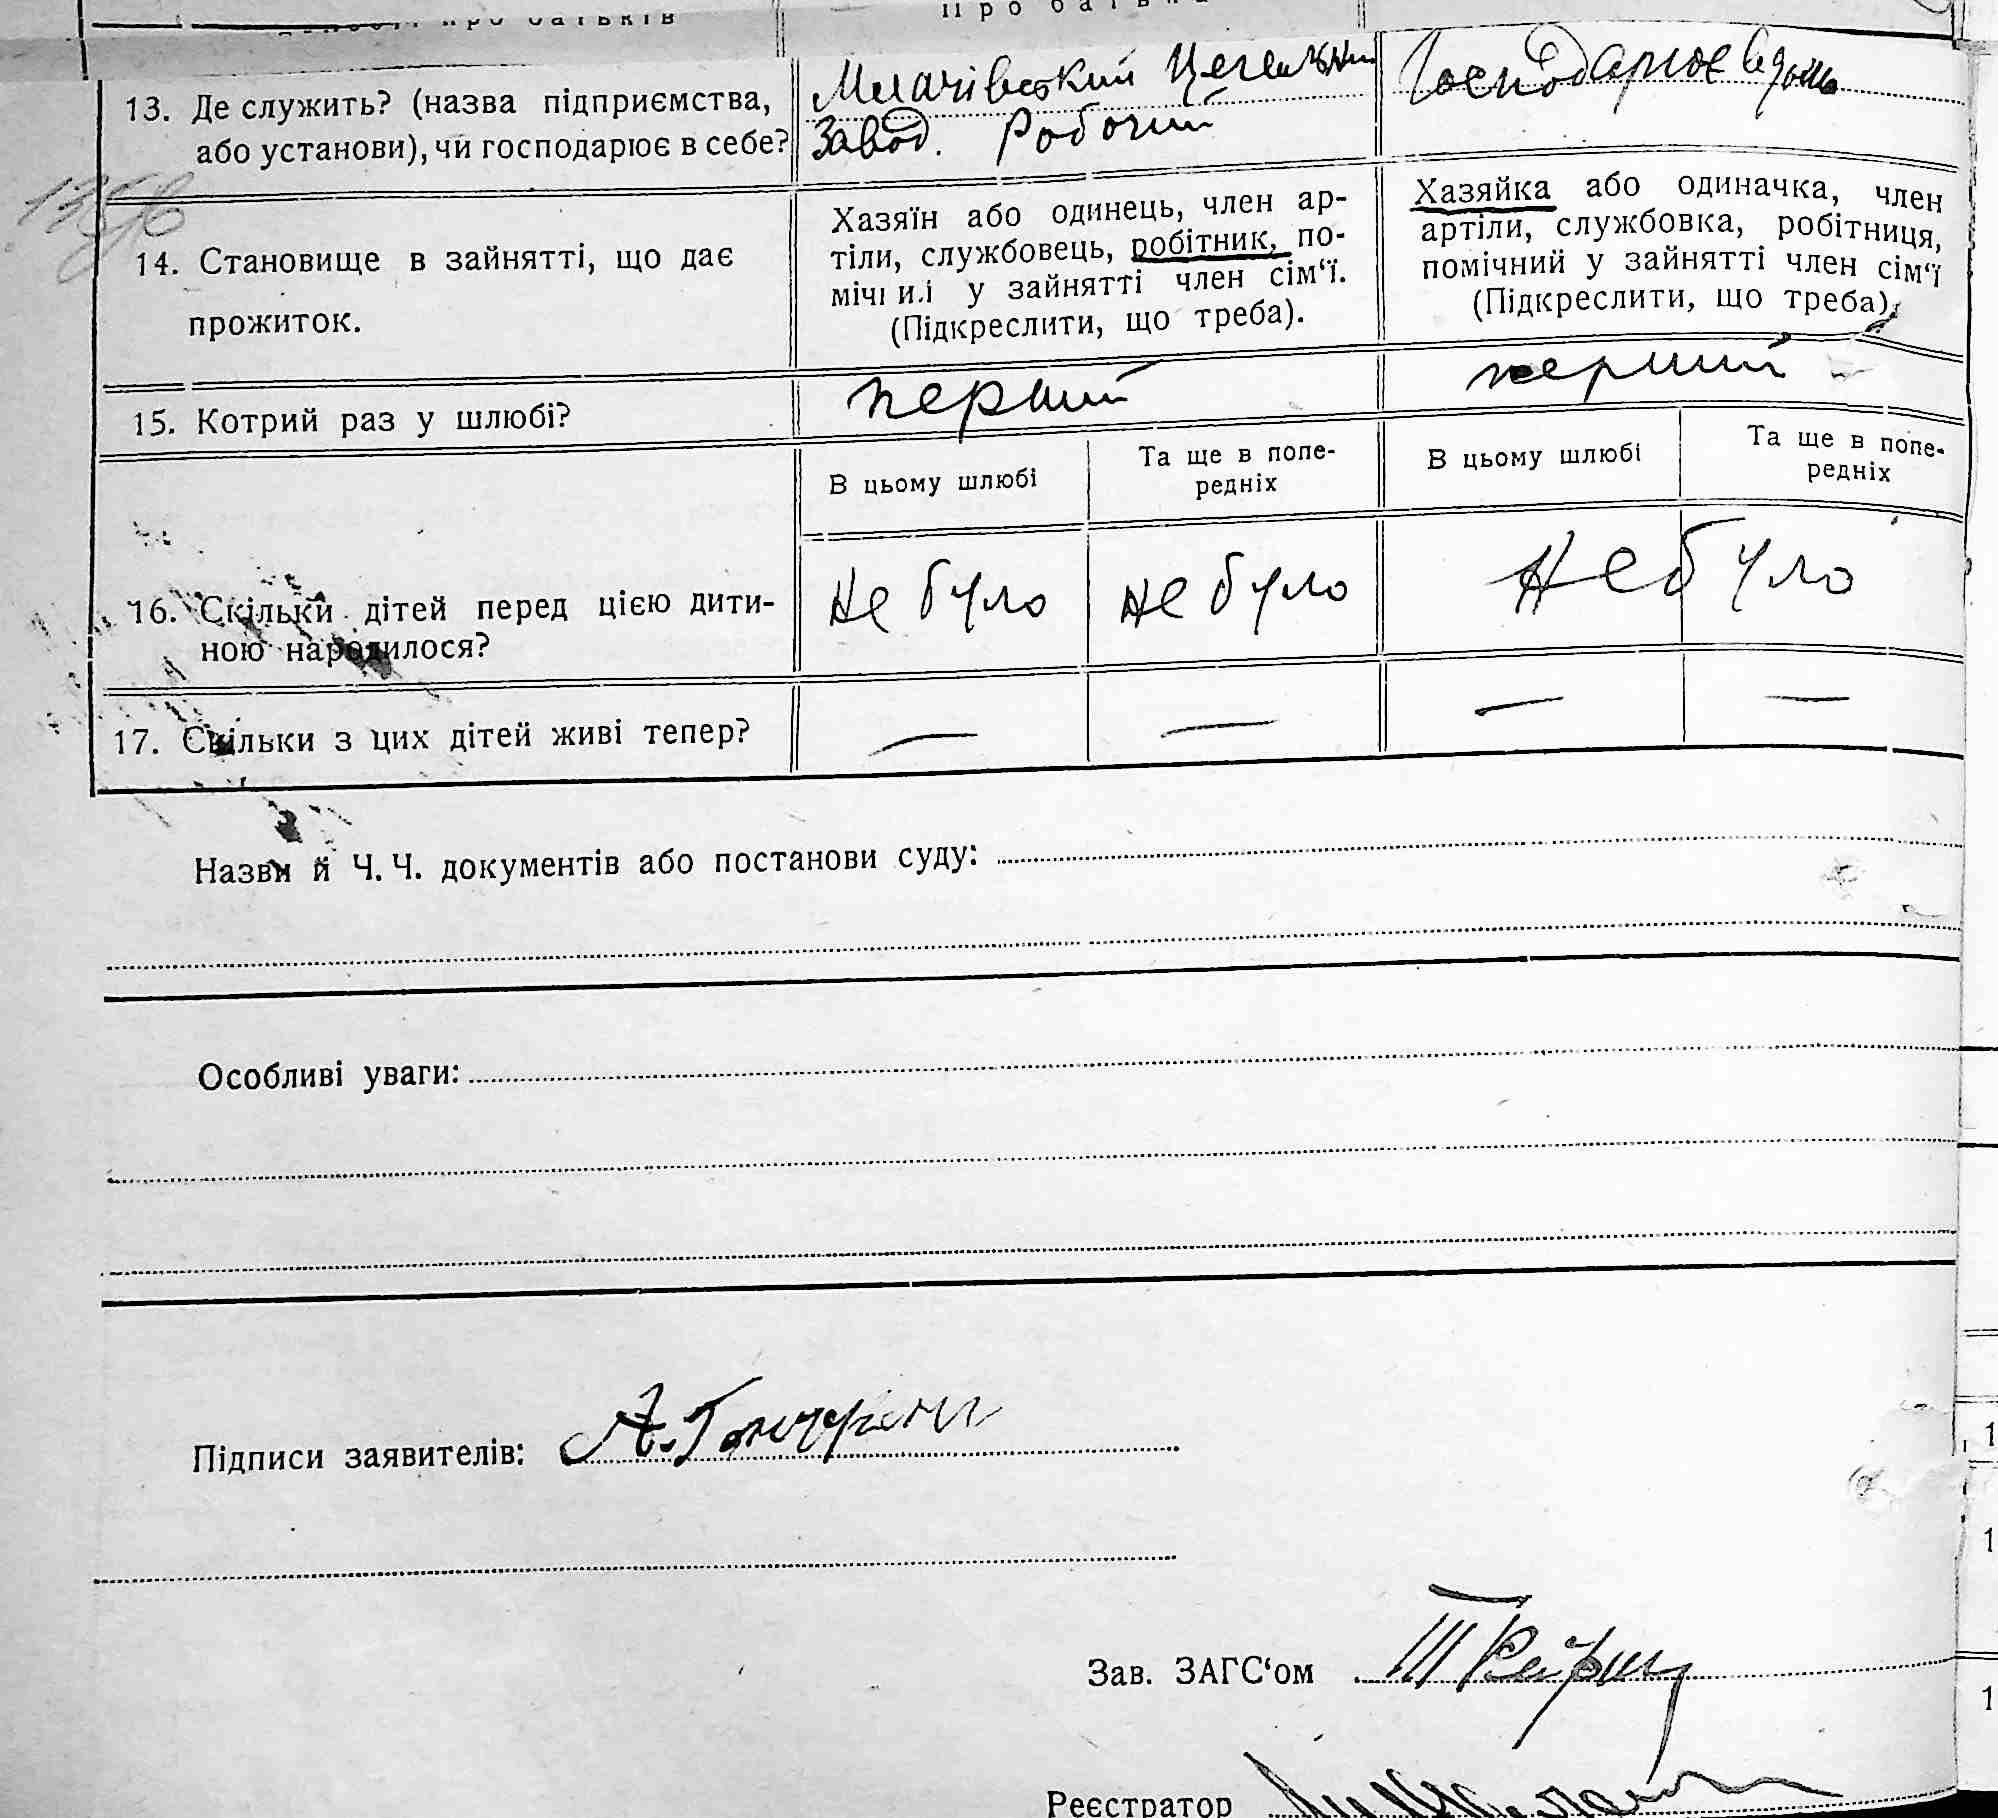 про батьків
Про батька
13. Де служить? (назва підприємства,
або установи), чи господарює в себе?
Цегельний
Завод. Робочий
Господарює вдома
14. Становище в зайнятті, що дає
прожиток.
Хазяїн або одинець, член ар-
тіли, службовець, робітник, по-
мічний у зайнятті член сім‘ї.
(Підкреслити, що треба).
Хазяйка або одиначка, член
артіли, службовка, робітниця,
помічний у зайнятті член сім‘ї
(Підкреслити, що треба).
15. Котрий раз у шлюбі?
перший
перший
16. Скільки дітей перед цією дити-
ною народилося?
В цьому шлюбі
Та ще в попе-
редніх
В цьому шлюбі
Та ще в попе-
редніх
не було
не було
не було
17. Скільки з цих дітей живі тепер?
—
—
—
—
Назви й Ч. Ч. документів або постанови суду:
Особливі уваги:
Підписи заявителів: А.
Зав. ЗАГС‘ом
Реєстратор